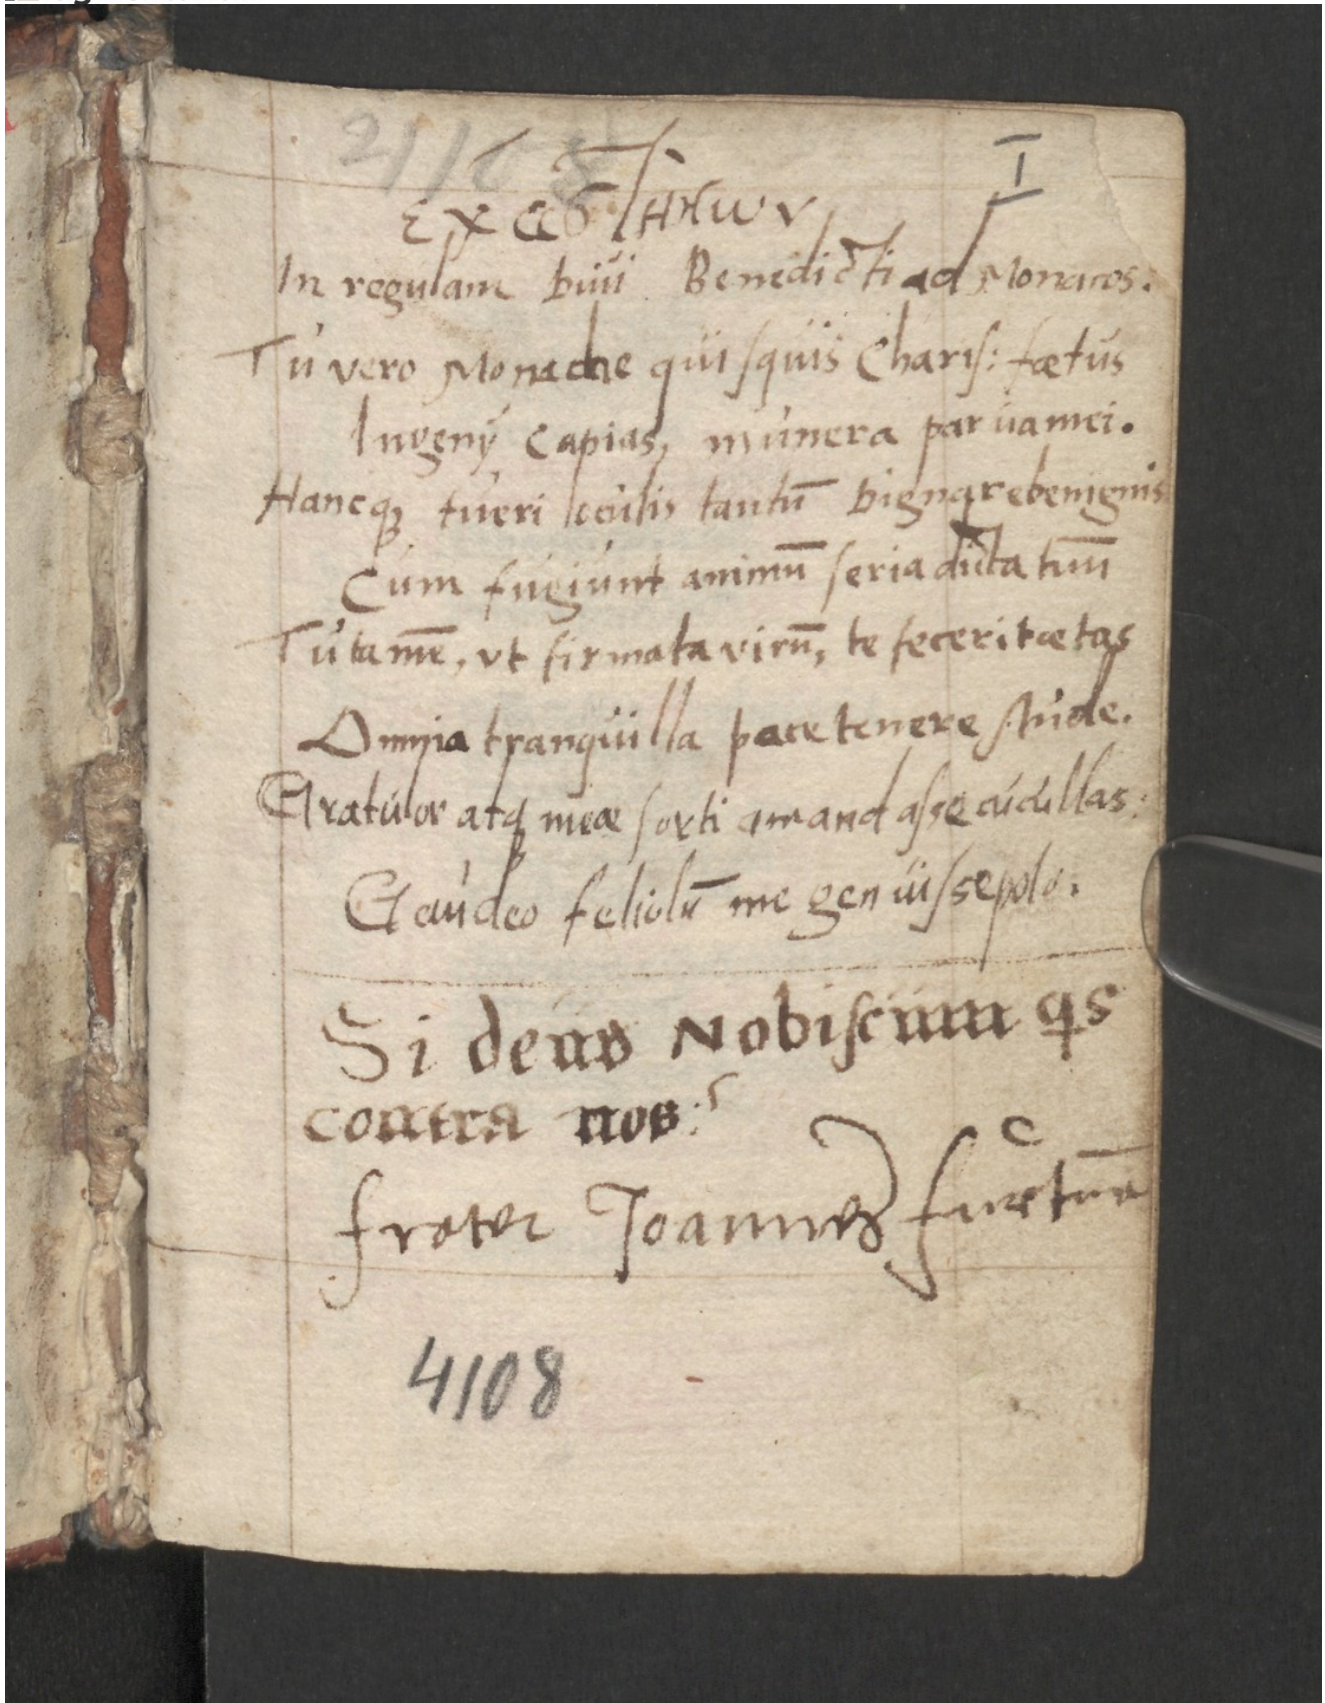 I
In regulam Benedicti ad Monacos.
Tu vero Monache quisquis Charis: fœtus
Ingenÿ capias, munera parva mei.
Hancq; tueri oculis tantū benignis
Cum fugiunt animū seria dicta tuū
Tu tamē, vt firmata virū, te fecerit œtas
Omnia tranquilla pace tenere stude.
Gratulor atq meœ sorti amandasse cucullas:
Gaudeo me genuisse polo.
Si deus Nobiscum qs
contra nos:
frater Joannes
4108